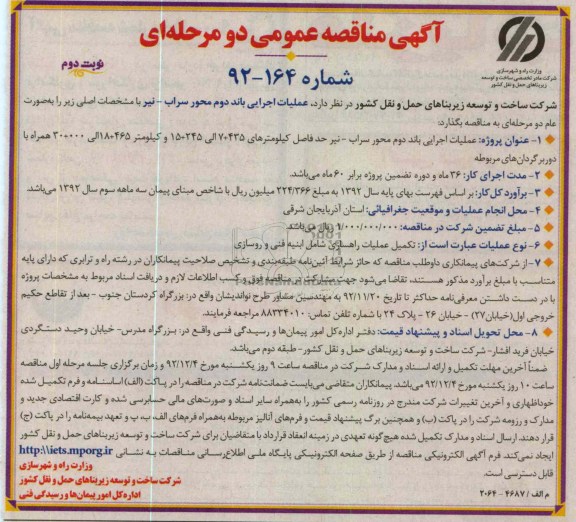 آگهی مناقصه عمومی دو مرحله‌ای
وزارت راه و شهرسازی
شرکت مادر تخصصی ساخت و توسعه
زیربناهای حمل و نقل کشور
شماره ۱۶۴-۹۲
نوبت دوم
شرکت ساخت و توسعه زیربناهای حمل و نقل کشور در نظر دارد، عملیات اجرایی باند دوم محور سراب - نیر با مشخصات اصلی زیر را به‌صورت
عام دو مرحله‌ای به مناقصه بگذارد:
۱- عنوان پروژه: عملیات اجرایی باند دوم محور سراب - نیر حد فاصل کیلومترهای ۷۰۴۳۵ الی ۱۵۰۲۴۵ و کیلومتر ۱۸۰۴۶۵ الی ۳۰۰۰۰۰ همراه با
دوربرگردان‌های مربوطه
۲- مدت اجرای کار: ۳۶ ماه و دوره تضمین پروژه برابر ۶۰ ماه می‌باشد.
۳- برآورد کل کار: بر اساس فهرست بهای پایه سال ۱۳۹۲ به مبلغ ۲۲۴/۳۶۶ میلیون ریال با شاخص مبنای پیمان سه ماهه سوم سال ۱۳۹۲ می‌باشد.
۴- محل انجام عملیات و موقعیت جغرافیائی: استان آذربایجان شرقی
۵- مبلغ تضمین شرکت در مناقصه: ۹/۰۰۰/۰۰۰/۰۰۰ ریال می‌باشد
۶- نوع عملیات عبارت است از: تکمیل عملیات راهسازی شامل ابنیه فنی و روسازی
۷- از شرکت‌های پیمانکاری داوطلب مناقصه که حائز شرایط آئین‌نامه طبقه‌بندی و تشخیص صلاحیت پیمانکاران در رشته راه و ترابری که دارای پایه
متناسب با مبلغ برآورد مذکور هستند، تقاضا می‌شود جهت مشارکت در مناقصه فوق و کسب اطلاعات لازم و دریافت اسناد مربوط به مشخصات پروژه
با در دست داشتن معرفی‌نامه حداکثر تا تاریخ ۹۲/۱۱/۲۰ به مهندسین مشاور طرح نواندیشان واقع در: بزرگراه کردستان جنوب - بعد از تقاطع حکیم
خروجی اول(خیابان ۲۷) - خیابان ۲۶ - پلاک ۲۴ با شماره تلفن تماس: ۸۸۳۳۴۰۱۰ مراجعه فرمایند.
۸- محل تحویل اسناد و پیشنهاد قیمت: دفتر اداره‌کل امور پیمان‌ها و رسیدگی فنی واقع در: بزرگراه مدرس- خیابان وحید دستگردی
خیابان فرید افشار- شرکت ساخت و توسعه زیربناهای حمل و نقل کشور- طبقه دوم می‌باشد.
ضمناً آخرین مهلت تکمیل و ارائه اسناد و مدارک شرکت در مناقصه ساعت ۹ روز یکشنبه مورخ ۹۲/۱۲/۴ و زمان برگزاری جلسه مرحله اول مناقصه
ساعت ۱۰ روز یکشنبه مورخ ۹۲/۱۲/۴ می‌باشد. پیمانکاران متقاضی می‌بایست ضمانت‌نامه شرکت در مناقصه را در پاکت (الف) اساسنامه و فرم تکمیل شده
خوداظهاری و آخرین تغییرات شرکت مندرج در روزنامه رسمی کشور را به‌همراه سایر اسناد و صورت‌های مالی حسابرسی شده و کارت اقتصادی جدید و
مدارک و رزومه شرکت را در پاکت (ب) و همچنین برگ پیشنهاد قیمت و فرم‌های آنالیز مربوطه به‌همراه فرم‌های الف، ب، پ و تعهد بیمه‌نامه را در پاکت (ج)
قرار دهند. ارسال اسناد و مدارک تکمیل شده هیچ‌گونه تعهدی در زمینه انعقاد قرارداد با متقاضیان برای شرکت ساخت و توسعه زیربناهای حمل و نقل کشور
ایجاد نمی‌کند. فرم آگهی الکترونیکی مناقصه از طریق صفحه الکترونیکی پایگاه ملی اطلاع‌رسانی مناقصات به نشانی http:\\iets.mporg.ir
قابل دسترسی است.
وزارت راه و شهرسازی
شرکت ساخت و توسعه زیربناهای حمل و نقل کشور
اداره‌کل امور پیمان‌ها و رسیدگی فنی
م الف / ۴۶۸۷ - ۲۰۶۴